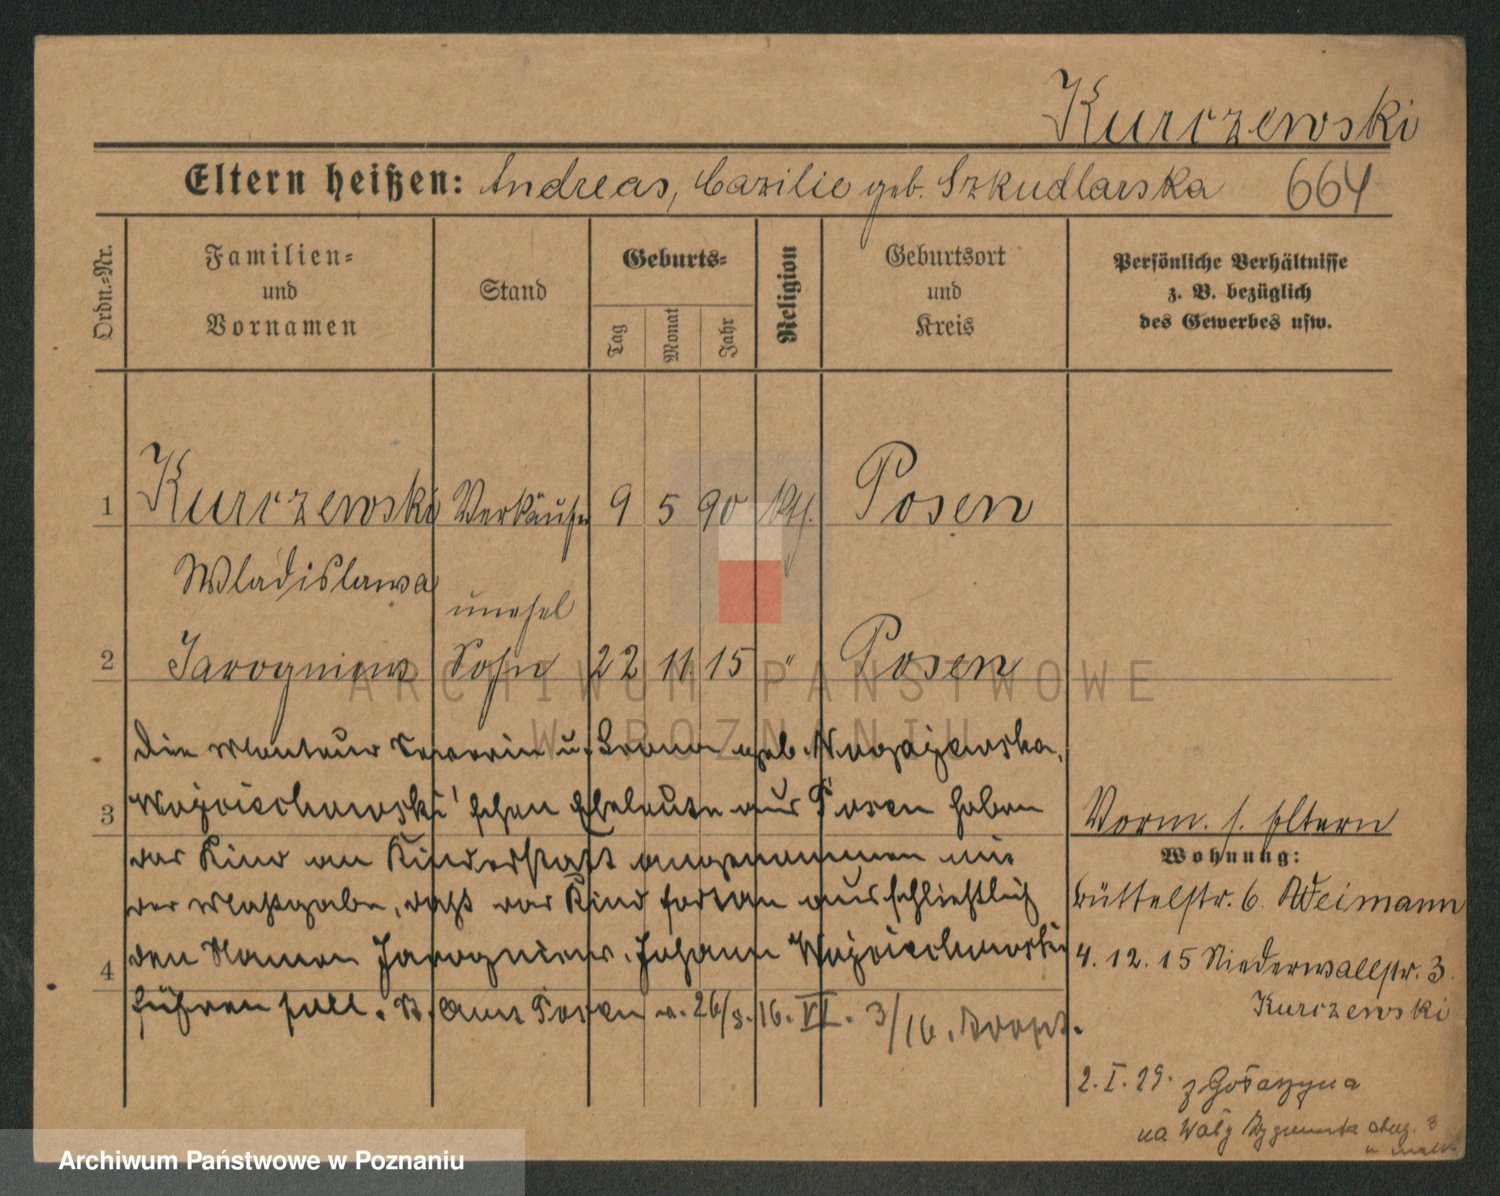 Kurczewski
Eltern heißen: Andreas, Cazilie geb. Szkudlarska 664
Ordn.-Nr.
Familien-
und
Vornamen
Stand
Geburts-
Tag
Monat
Jahr
Religion
Geburtsort
und
Kreis
Persönliche Verhältnisse
z. B. bezüglich
des Gewerbes usw.
1 Kurczewski Verkäufer 9 5 90 kth. Posen
Wladislawa
unehel
2 Jarogniew Sohn 22 11 15 " Posen
ARCHIWUM PAŃSTWOWE
W POZNANIU
Die Monteur Severin u. geb.
3 Wojciechowski'schen Eheleute aus Posen haben
das Kind an Kindesstatt angenommen mit
der Maßgabe, daß das Kind fortan ausschließlich
4 den Namen Jarogniew, Johann Wojciechowski
führen soll. St. Amt Posen v. 26/8. 16. VI. 3/16.
Vorm. s. Eltern
Wohnung:
Büttelstr. 6. Weimann
4. 12. 15 Niederwallstr. 3.
Kurczewski
2. I. 29. z Gołaszyna
na Wały
Archiwum Państwowe w Poznaniu